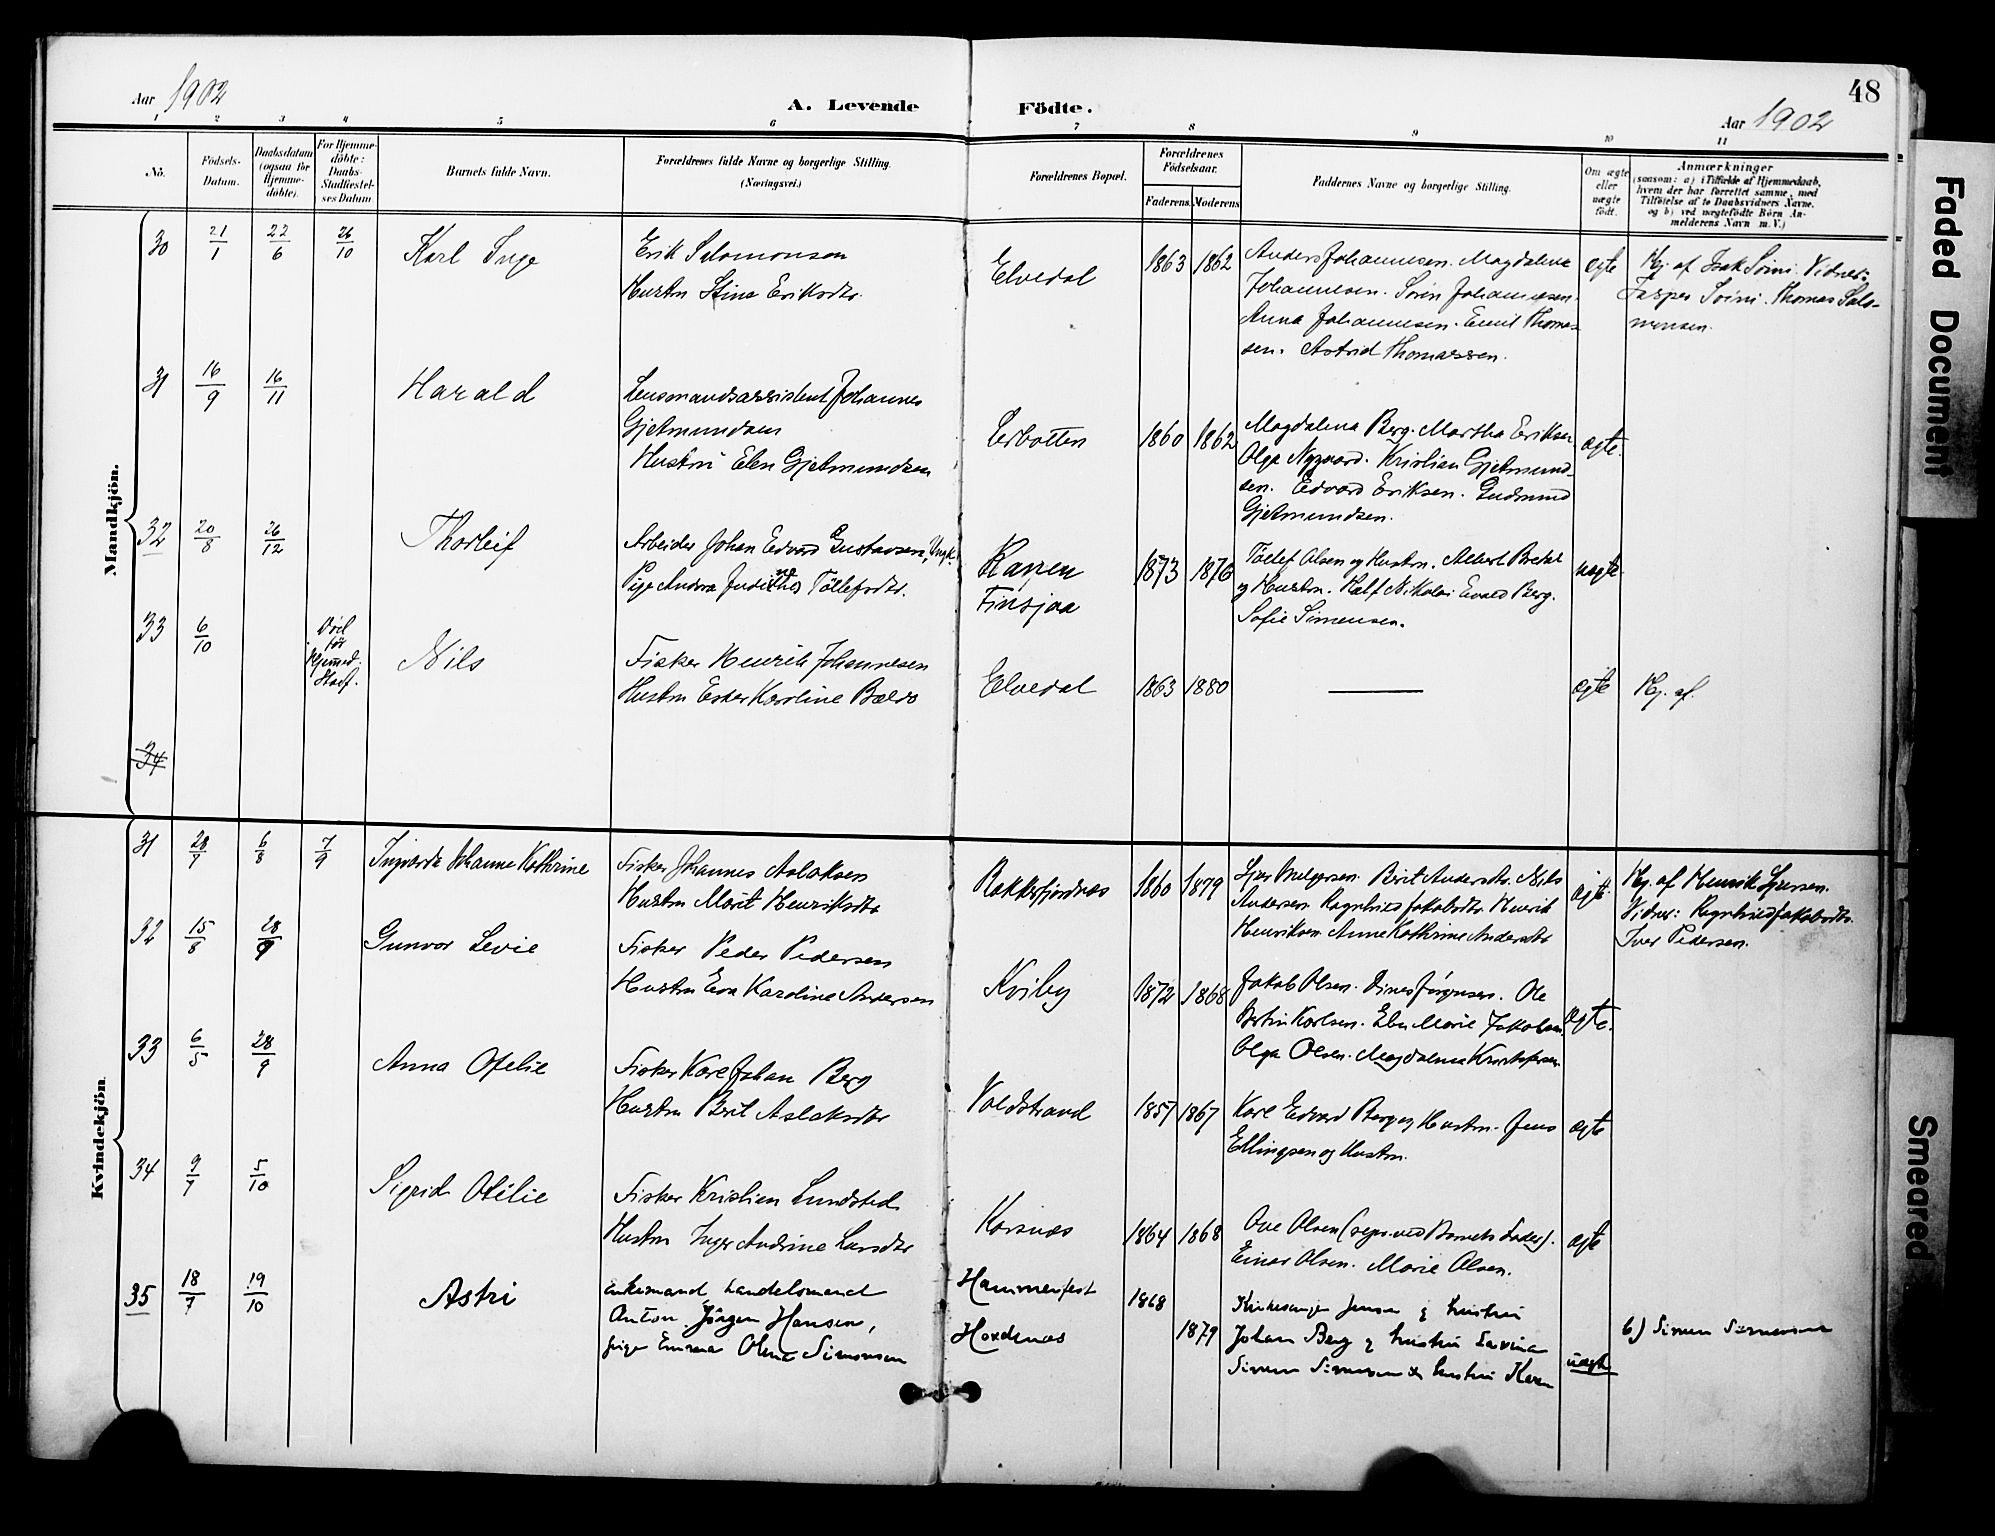 Aar 1902
A. Levende
Födte.
48
Aar 1902
1 2 3 4 5 6 7 8 9 10 11
No.
Födsels-
Datum.
Daabsdatum
(ogsaa for
Hjemme-
döbte).
For Hjemme-
döbte:
Daabs-
Stadfæstel-
ses Datum
Barnets fulde Navn.
Forældrenes fulde Navne og borgerlige Stilling.
(Næringsvei.)
Forældrenes Bopæl.
Forældrenes
Födselsaar.
Faderens. Moderens.
Faddernes Navne og borgerlige Stilling.
Om ægte
eller
uægte
födt.
Anmærkninger
(saasom: a) i Tilfælde af Hjemmedaab,
hvem der har forrettet samme, med
Tilföielse af to Daabsvidners Navne.
og b) ved uægtefödte Börn An-
melderens Navn m. V.)
Mandkjön.
30 21/1 22/6 26/10 Karl Inge
Erik Salomonsen
Hustru Stina Eriksdtr.
Elvedal 1863 1862
Anders Johannesen. Magdalena
Johannesen. Sören Johannesen.
Anna Johannesen. Emil Thomas-
sen. Astrid Thomassen.
ægte
Hj. af Isak Soini. Vidner:
Jasper Soini. Thomas Salo-
monsen.
31 16/9 16/11 Harald
Lensmandsassistent Johannes
Gjetmundsen
Hustru Elen Gjetmundsen
Lerbotten 1860 1862
Magdalena Berg. Martha Eriksen
Olga Nygaard. Kristian Gjetmund-
sen. Edvard Eriksen. Gudmund
Gjetmundsen.
ægte.
32 20/8 26/12 Thorleif
Arbeider Johan Edvard Gustavsen, Ungk.
Pige Andrea Töllefsdtr.
Finsjaa
1873 1876
Töllef Olsen og Hustru. Albert
og Hustru. Half Nikolai Evald Berg.
Sofie Simensen.
uægte
33 6/10
Död
för
Hjemmed.
Stadf.
Nils
Fisker Henrik Johannesen
Hustru Ester Karoline
Elvedal 1863 1880
ægte
Hj. af.
34
Kvindekjön.
31 28/7 6/8 7/9 Ingvarda Johanne Kathrine
Fisker Johannes Aslaksen
Hustru Marit Henriksdtr
Rakkefjordnæs 1860 1879
Berit Andersdtr. Nils
Andersen. Ragnhild Jakobsdtr. Henrik
Henriksen. Anne Kathrine Andersdtr
ægte
Hj. af Henrik
Vidner: Ragnhild Jakobsdtr.
Iver Pedersen.
32 15/8 28/9 Gunvor Levie
Fisker Peder Pedersen
Hustru Eva Karoline Andersen
Kviby 1872 1868
Jakob Olsen. Dines Jörgensen. Ole
Bertin Karlsen. Elen Marie Jakobsen.
Olga Olsen. Magdalena Kristofersen
ægte.
33 6/5 28/9 Anna Ofelie
Fisker Karl Johan Berg
Hustru Berit Aslaksdtr
Voldstrand 1857 1867
Karl Edvard Berg og Hustru. Jens
Ellingsen og Hustru.
ægte
34 9/7 5/10 Sigrid Otilie
Fisker Kristian Lundsted
Hustru Inger Andrine Larsdtr
Korsnæs 1864 1868
Ove Olsen (repr. ved Barnets Fader).
Einar Olsen. Marie Olsen.
ægte
35 18/7 19/10 Astri
enkemand, handelsmand
Anton Jörgen Hansen,
pige Emma Olava Simonsen
Hammerfest 1868
1879
Kirkesanger Jensen & hustru
Johan Berg & hustru Lavina
Simon Simonsen & hustru Karen
uægte
b) Simon Simonsen
Faded Document
Smeared